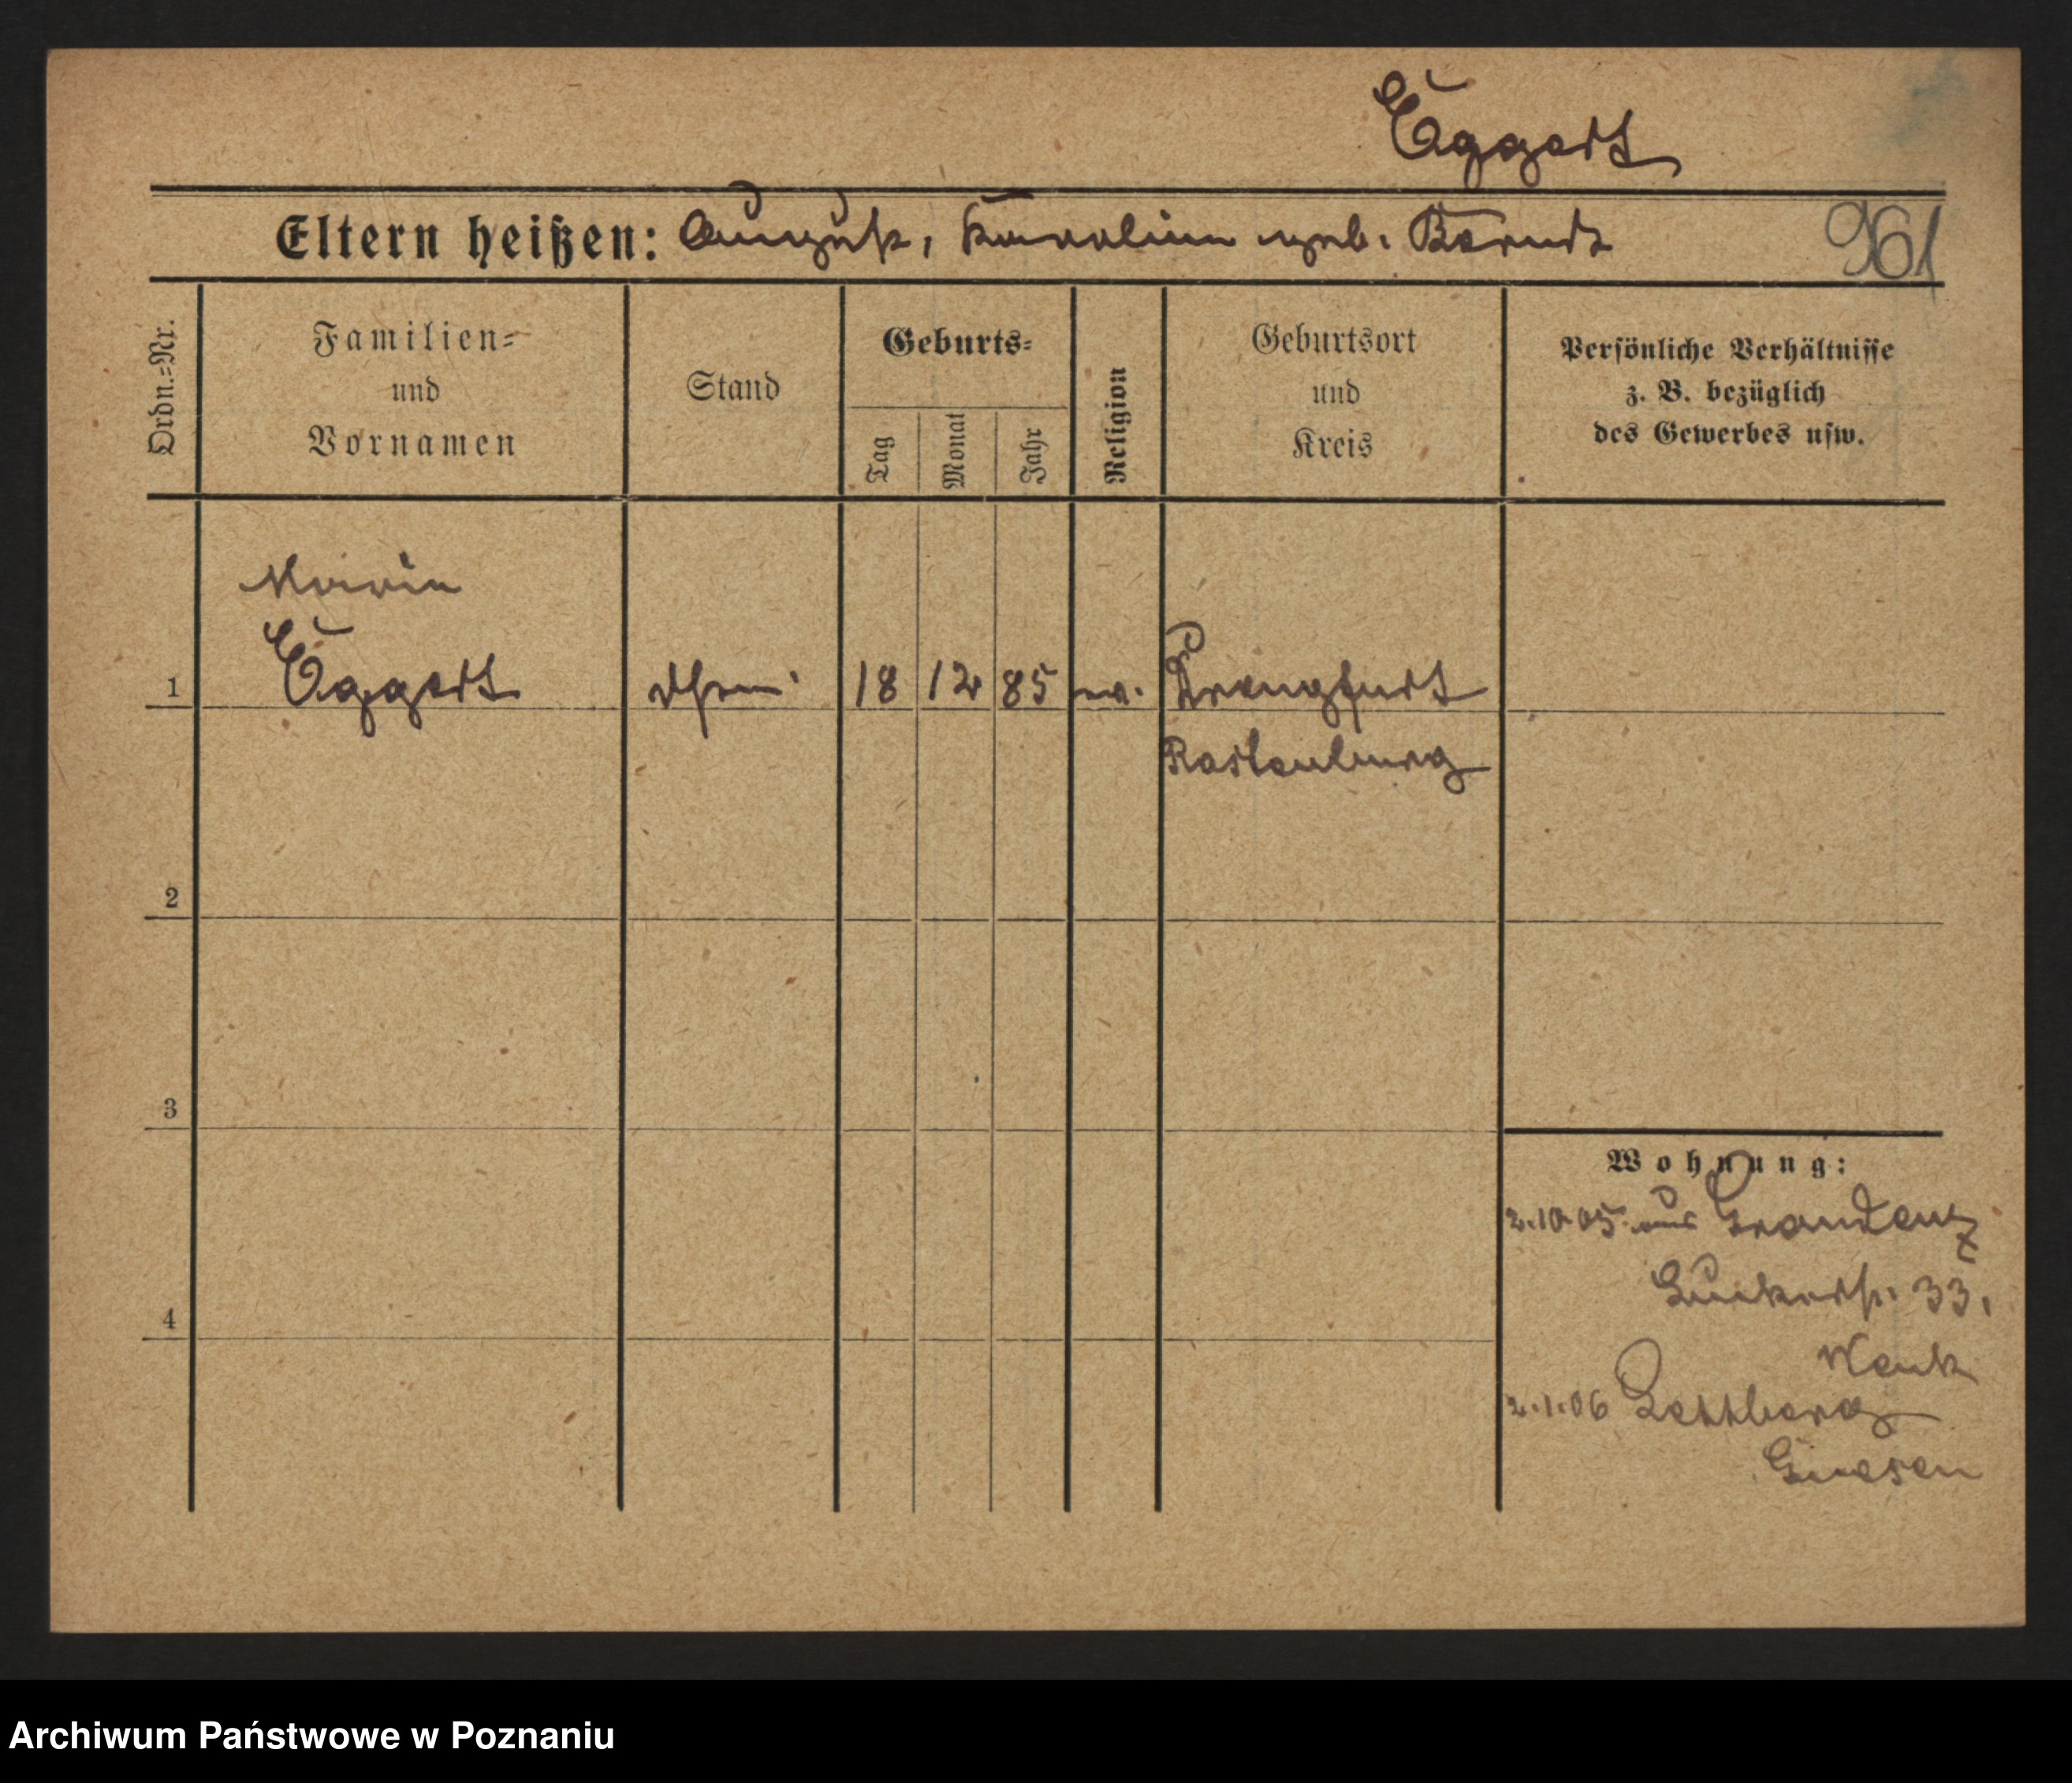 Eggert
Eltern heißen: August, Karoline geb. Berndt
961
Ordn.=Nr.
Familien=
und
Vornamen
Stand
Geburts=
Tag
Monat
Jahr
Religion
Geburtsort
und
Kreis
Persönliche Verhältnisse
z. B. bezüglich
des Gewerbes usw.
Marie
1 Eggert 18 12 85 ev. Drengfurt
Rastenburg
2
3
4
Wohnung:
2.10.05 aus Graudenz
33.
2.1.06 Rettberg
Gnesen
Archiwum Państwowe w Poznaniu